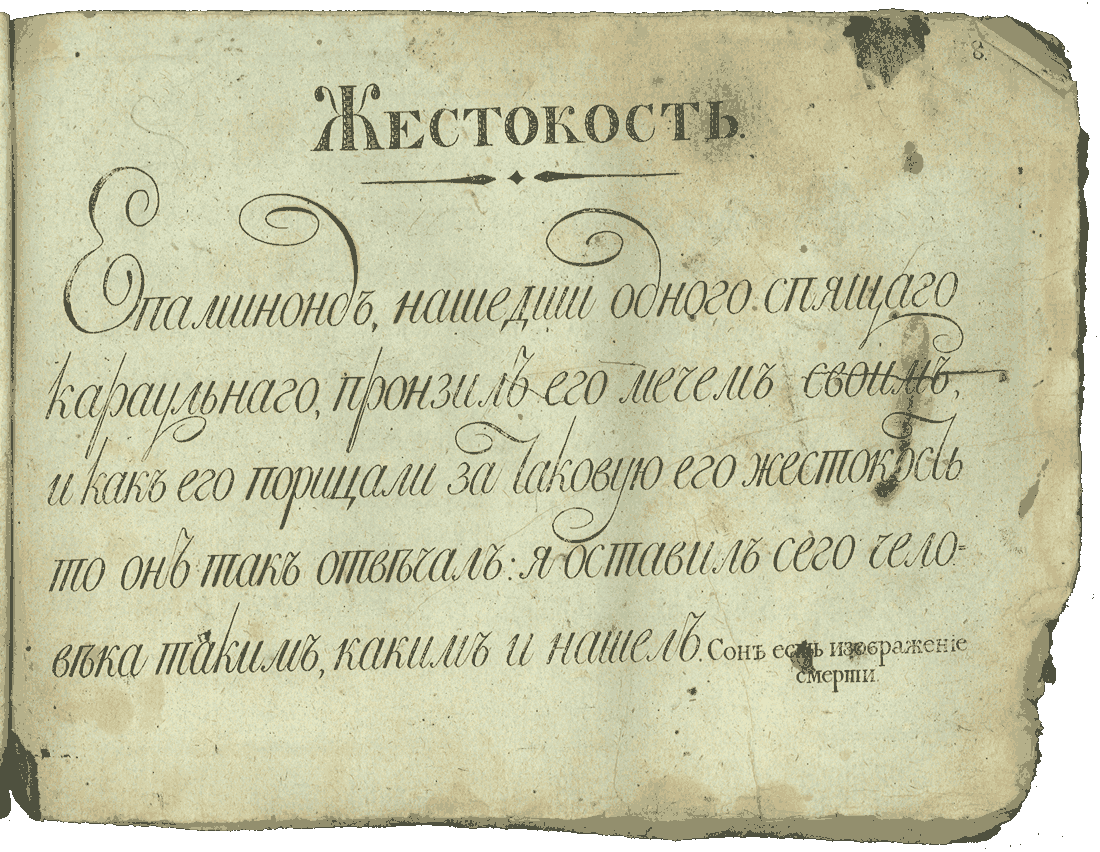 8.
Жестокость.
Епаминондъ, нашедши одного спящаго
караульнаго, пронзилъ его мечемъ своимъ,
и какъ его порицали за таковую его жестокость
то онъ такъ отвѣчалъ: я оставилъ сего чело=
вѣка такимъ, какимъ и нашелъ. Сонъ есть изображеніе
смерти.